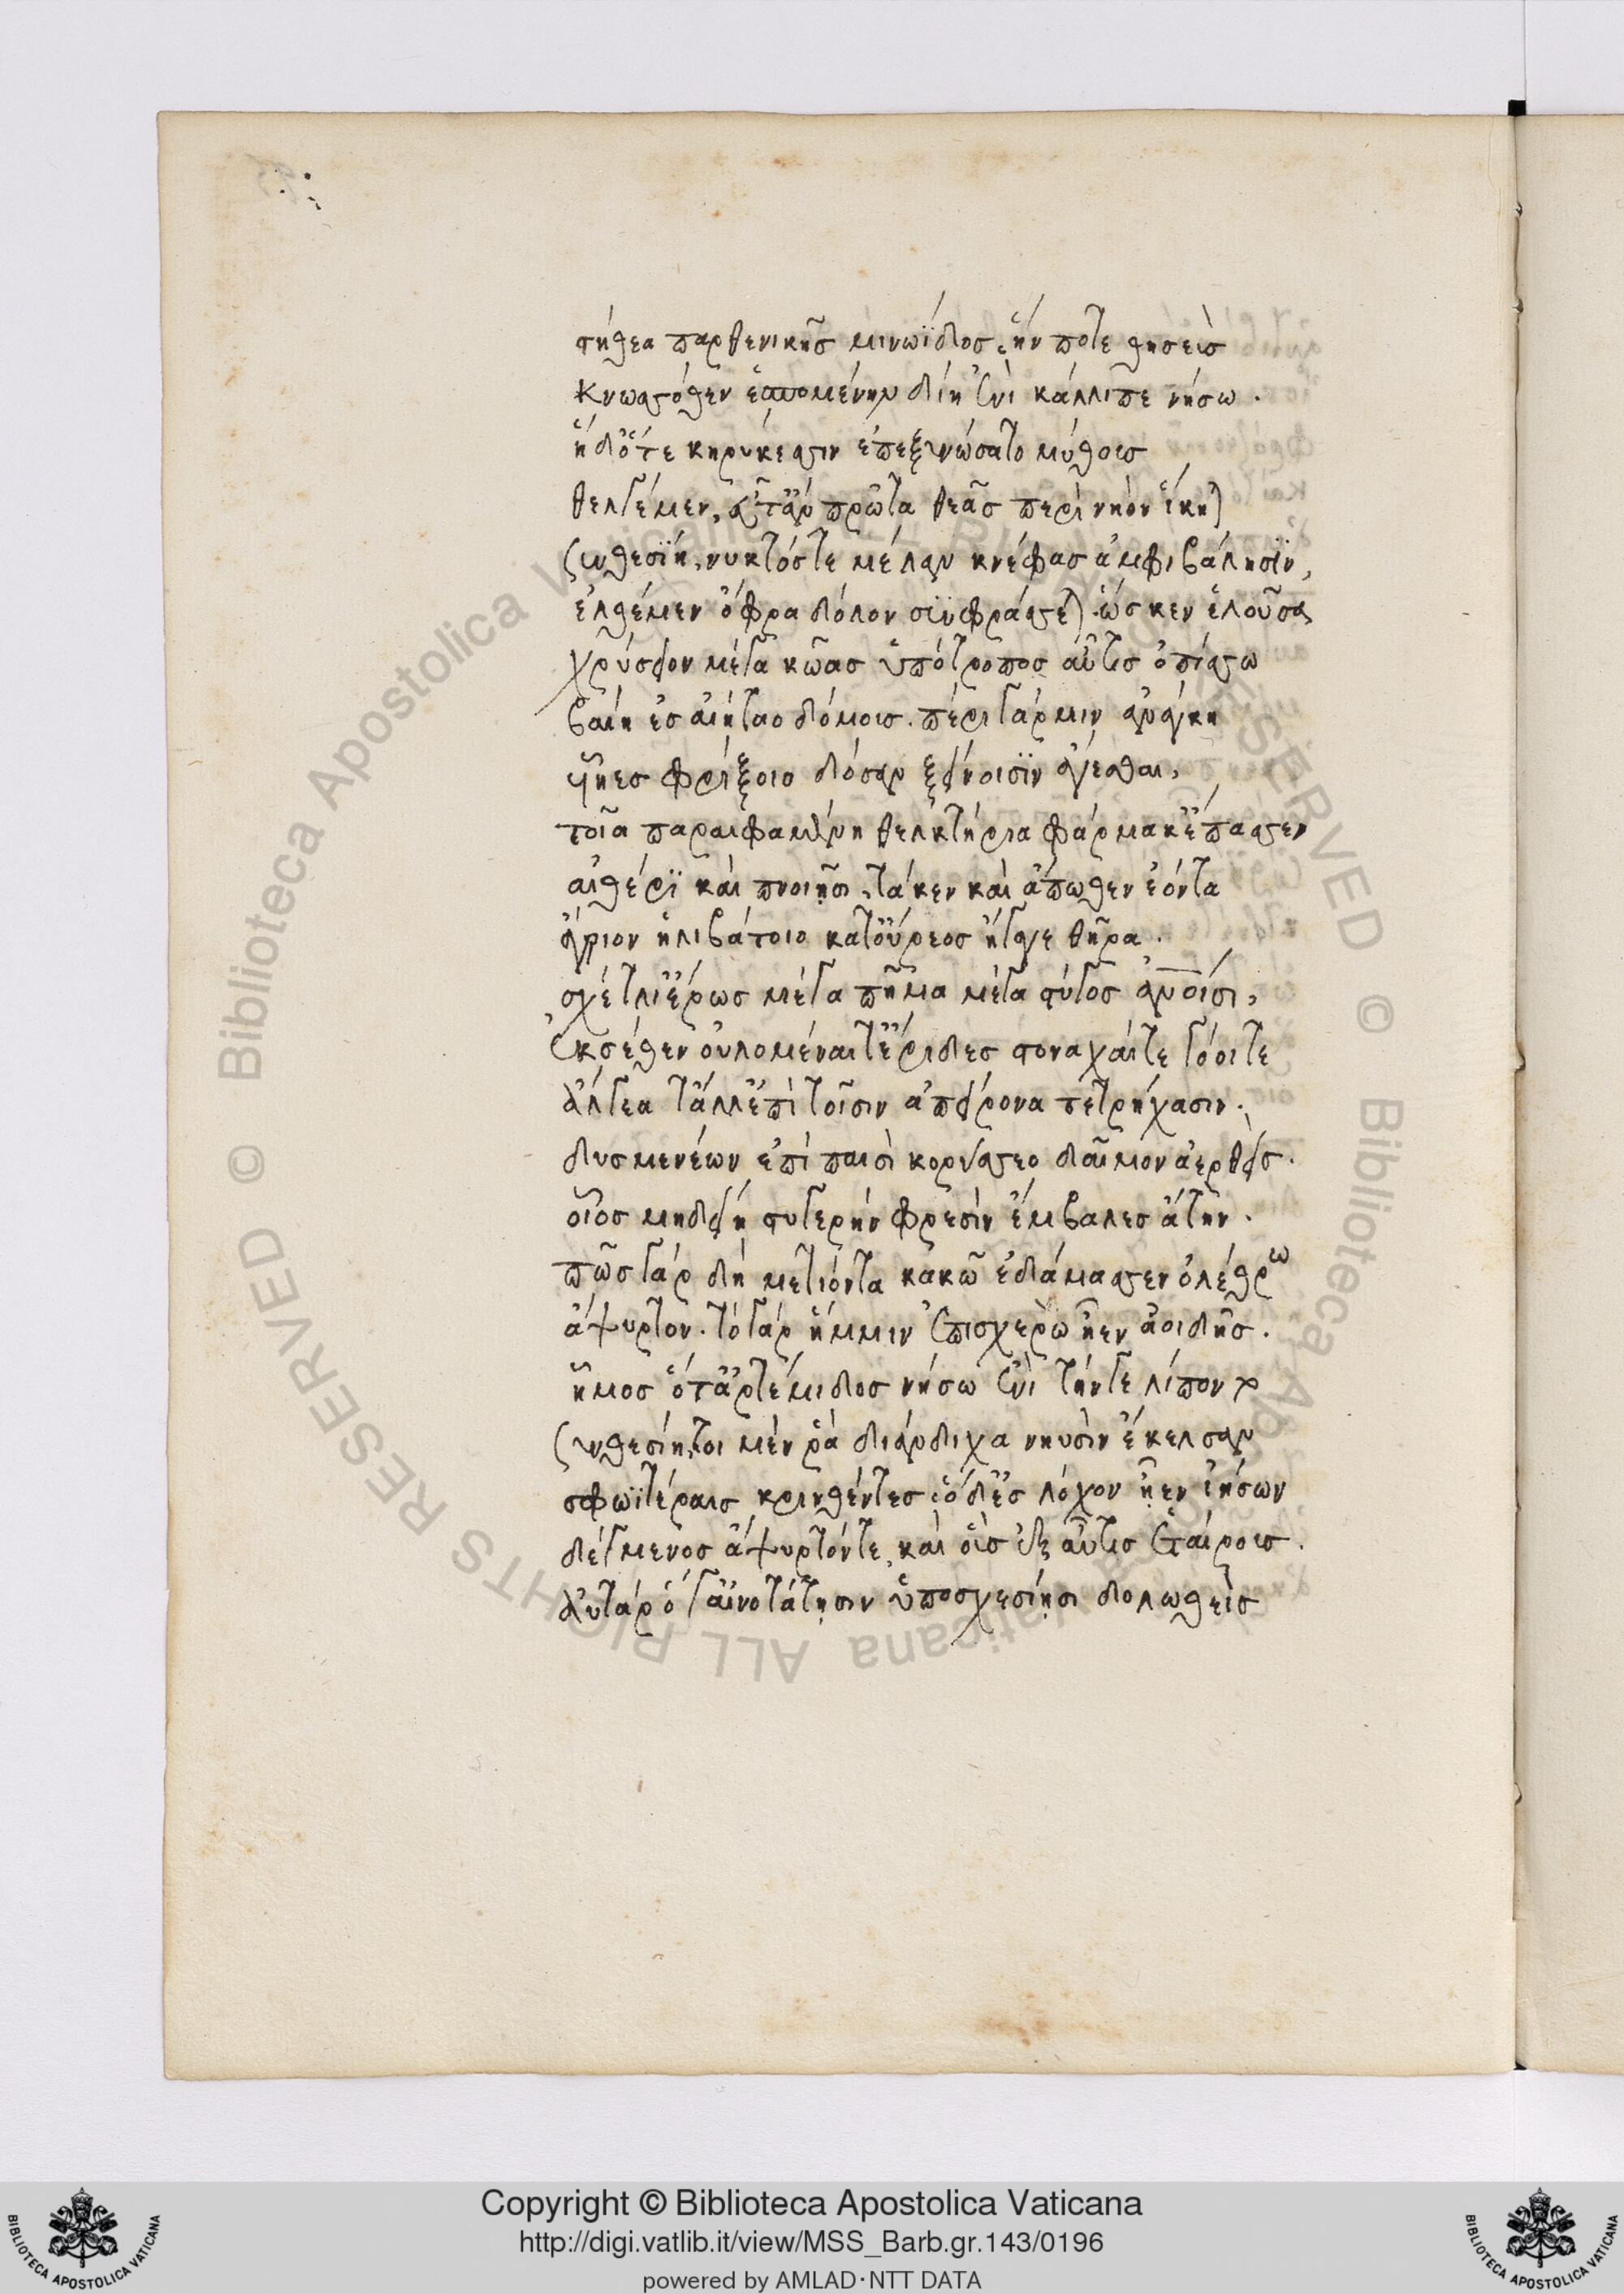 στήθεα παρθενικῆς μινωΐδος, ἥν ποτε θησεὺς
Κνωσσόθεν ἑσπομένην δίῃ ἐνὶ κάλλιπε νήσω.
ἡ δ' ὅτε κηρύκεσσιν ἐπεξυνώσατο μύθους
θελγέμεν, εὖτ' ἂν πρῶτα θεᾶς περὶ νηὸν ἵκηται
συνθεσίη, νυκτός τε μέλαν κνέφας ἀμφιβάλησϊν,
ἐλθέμεν ὄφρα δόλον συμφράσσεται. ὥς κεν ἑλοῦσα
χρύσειον μέγα κῶας ὑπότροπος αὖτις ὀπίσσω
βαίη ἐς αἰήταο δόμους. πέρι γάρ μιν ἀνάγκη
υἱῆες φρίξοιο δόσαν ξείνοισϊν ἄγεσθαι,
τοῖα παραιφαμένη θελκτήρια φάρμακ' ἔπασσεν
αἰθέρϊ καὶ πνοιῇσι, τά κεν καὶ ἄπωθεν ἐόντα
ἄγριον ἠλιβάτοιο κατ' οὔρεος ἤγαγε θῆρα.
σχέτλι' ἔρως μέγα πῆμα μέγα στύγος ἀνοίσι,
ἐκ σέθεν οὐλόμεναί τ' ἔριδες στοναχαί τε γόοι τε
ἄλγεά τ' ἄλλ' ἐπὶ τοῖσιν ἀπείρονα τετρήχασιν.
δυσμενέων ἐπὶ παισὶ κορύσσεο δαῖμον ἀερθείς.
οἷος μηδείῃ στυγερὴν φρεσὶν ἔμβαλες ἄτην.
πῶς γὰρ δὴ μετιόντα κακῶ ἐδάμασσεν ὀλέθρω
ἄψυρτον. τὸ γὰρ ἥμμιν ἐπισχερὼ ἦεν ἀοιδῆς.
ἦμος ὅτ' ἀρτέμιδος νήσω ἐνὶ τήνγε λίπον το
συνθεσίη, τοι μέν ῥα διάνδιχα νηυσὶν ἔκελσαν
σφωϊτέραις κρινθέντες, ὁ δ' ἐς λόχον ἦεν ἰήσων
δέγμενος ἄψυρτόν τε, καὶ οὓς ἐξ αὖτις ἑταίρους.
αὐτὰρ ὅγ' αἰνοτάτῃσιν ὑποσχεσίῃσι δολωθεὶς
Copyright © Biblioteca Apostolica Vaticana
http://digi.vatlib.it/view/MSS_Barb.gr.143/0196
powered by AMLAD·NTT DATA